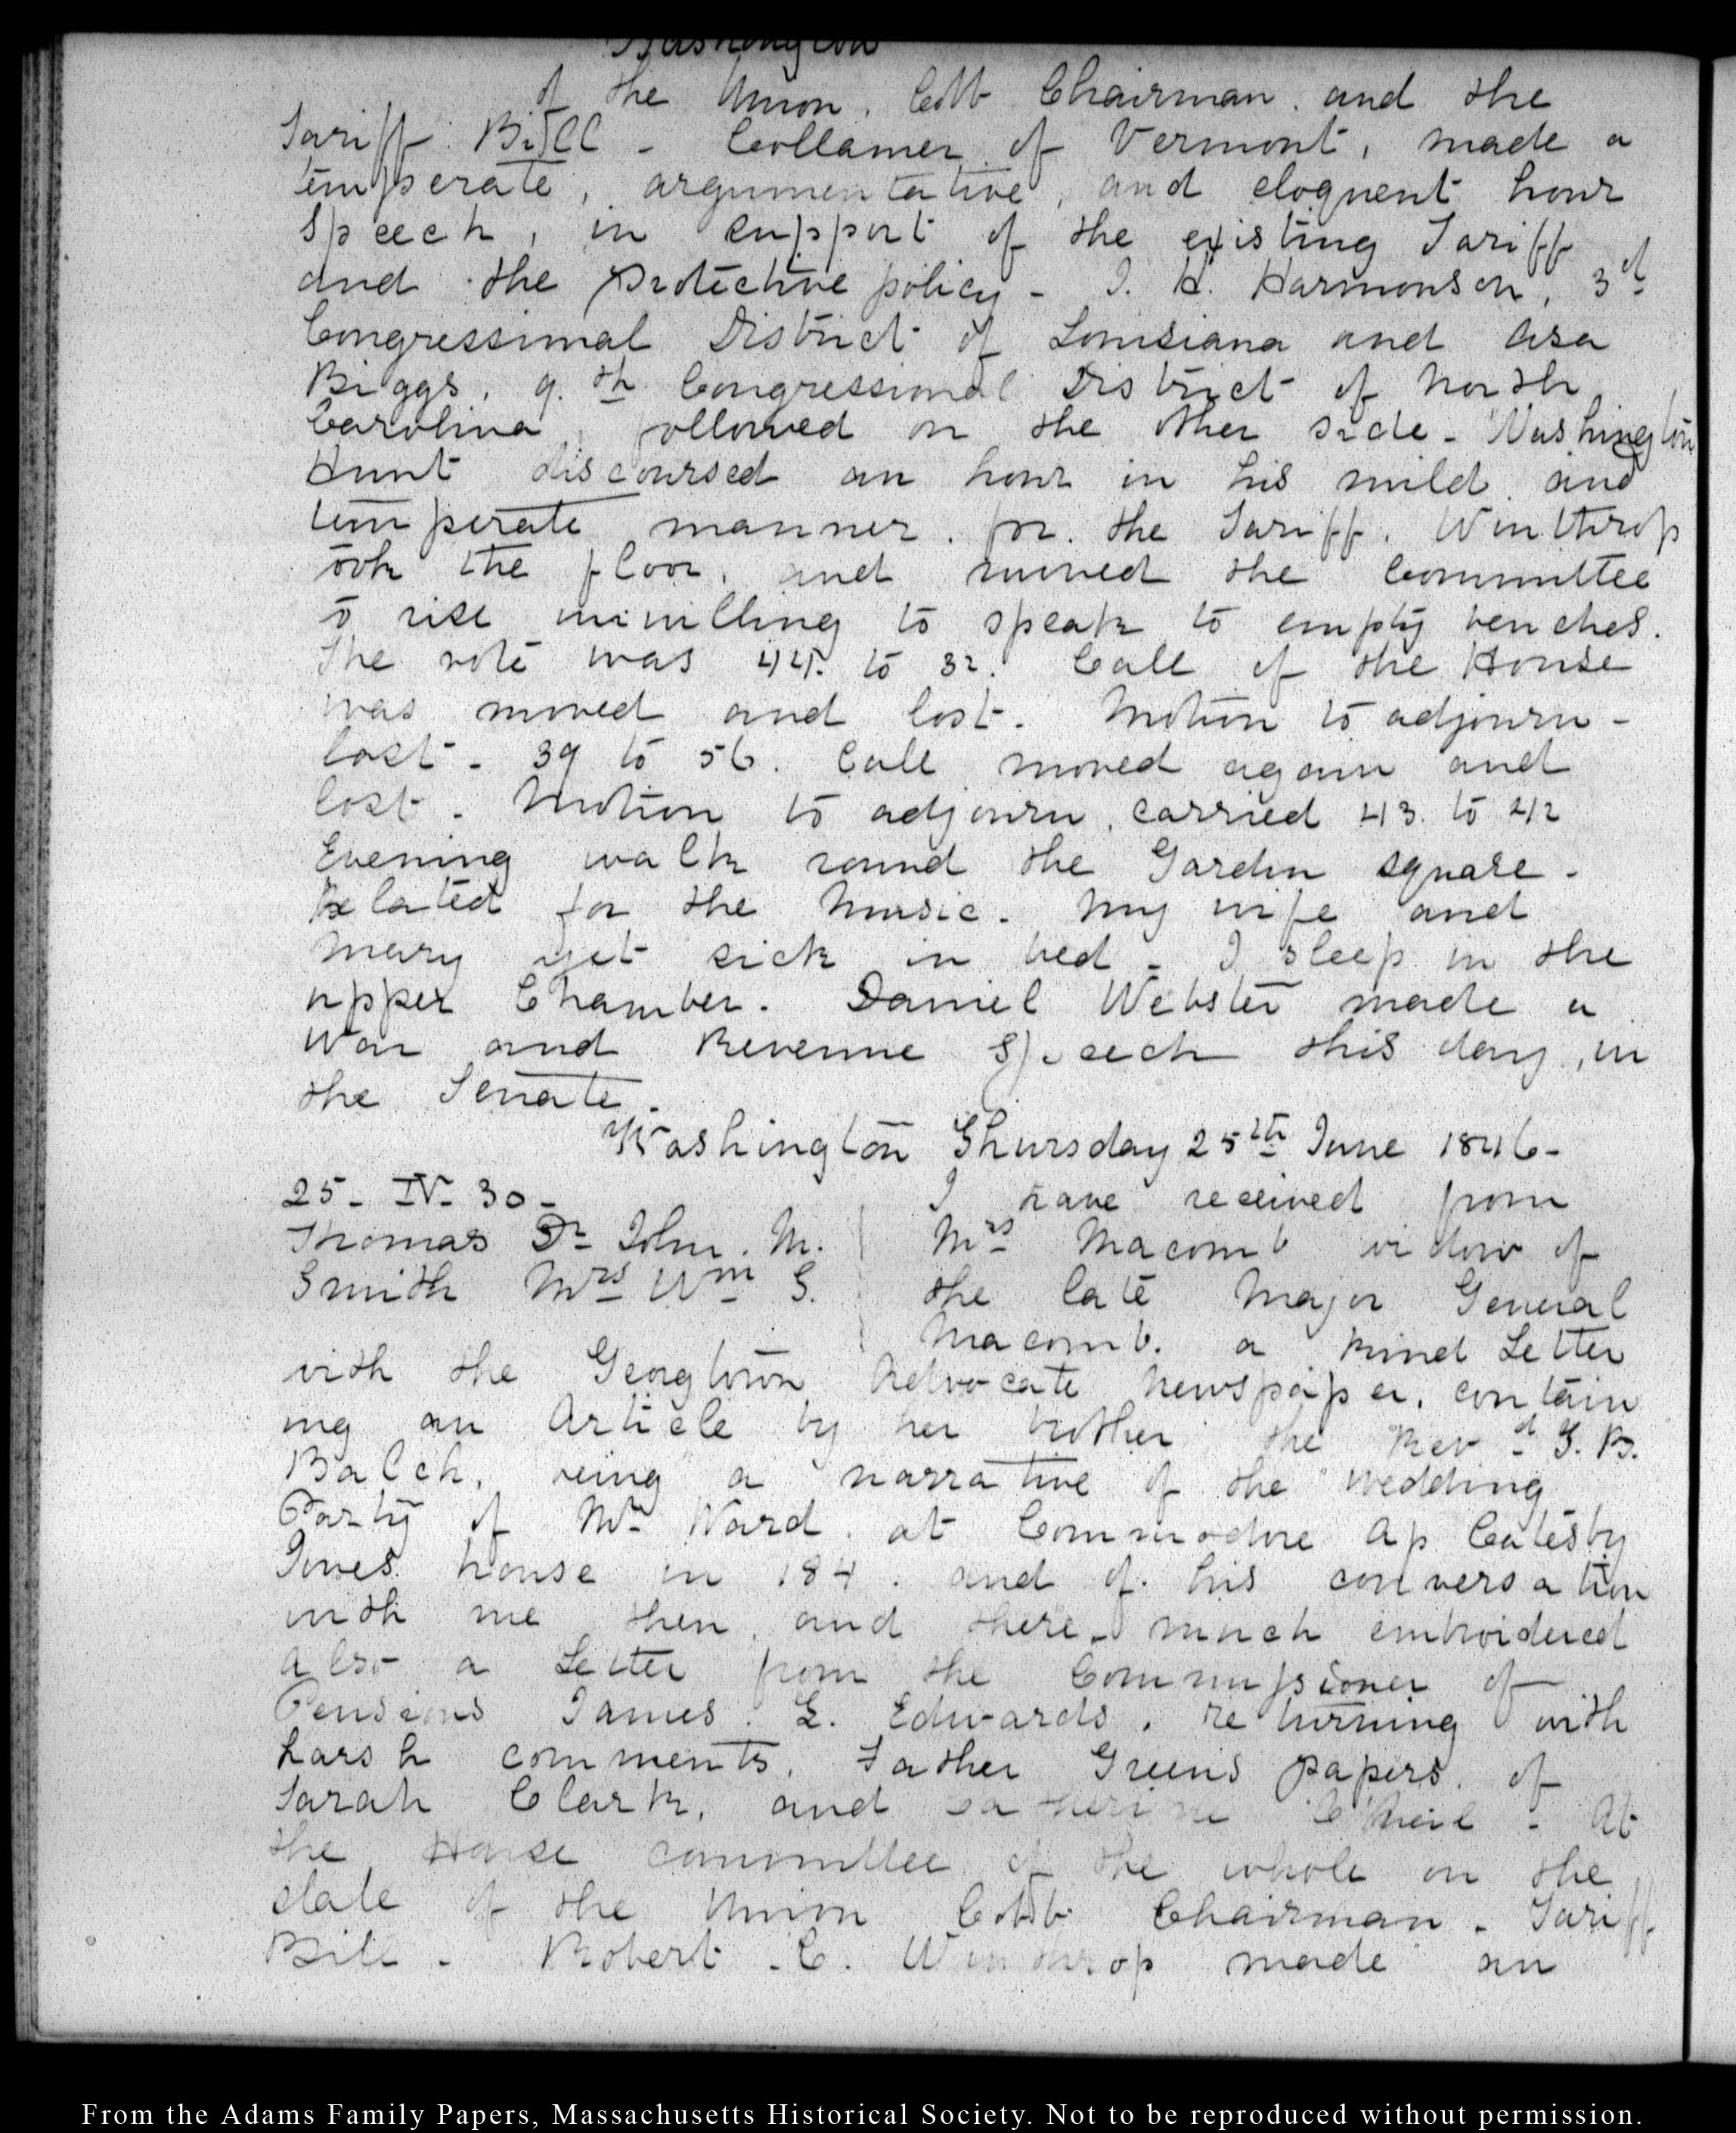 Washington
of the Union, Cobb Chairman. and the
Tariff Bill - Collamer of Vermont, made a
temperate, argumentative, and eloquent hour
speech, in support of the existing Tariff
and the protective policy - J. H. Harmonson, 3d
Congressional District of Louisiana and Asa
Biggs, 9.th Congressional District of North
Carolina, followed on the other side - Washington
Hunt discoursed an hour in his mild and
temperate manner. for the Tariff. Winthrop
took the floor, and moved the Committee
to rise unwilling to speak to empty benches.
The vote was to 32. Call of the House
was moved and lost. Motion to adjourn -
lost - 39 to 56. Call moved again and
lost. Motion to adjourn, carried 43 to 42
Evening walk round the Garden square -
Belated for the Music. My wife and
Mary yet sick in bed - I sleep in the
upper Chamber. Daniel Webster made a
War and Revenue Speech this day, in
the Senate.
Washington Thursday 25th June 1846-
25- IV- 30- I have received from
Thomas Dr John. M. Mrs Macomb widow of
Smith Mrs Wm S. the late Major General
Macomb. a kind Letter
with the Georgtown Advocate Newspaper, contain
ing an Article by her brother the Revd. T. B.
Balch, being a narrative of the wedding
Party of Mr Ward at Commodore Ap Catesby
Jones house in 184 . and of his conversation
with me then and there - much embroidered
Also a Letter from the Commissioner of
Pensions James L. Edwards, returning with
harsh comments, Father Greens papers of
Sarah Clark, and Catherine O'Neil - At
the House committee of the whole on the
state of the Union Cobb Chairman - Tariff
Bill - Robert C. Winthrop made an
From the Adams Family Papers, Massachusetts Historical Society. Not to be reproduced without permission.